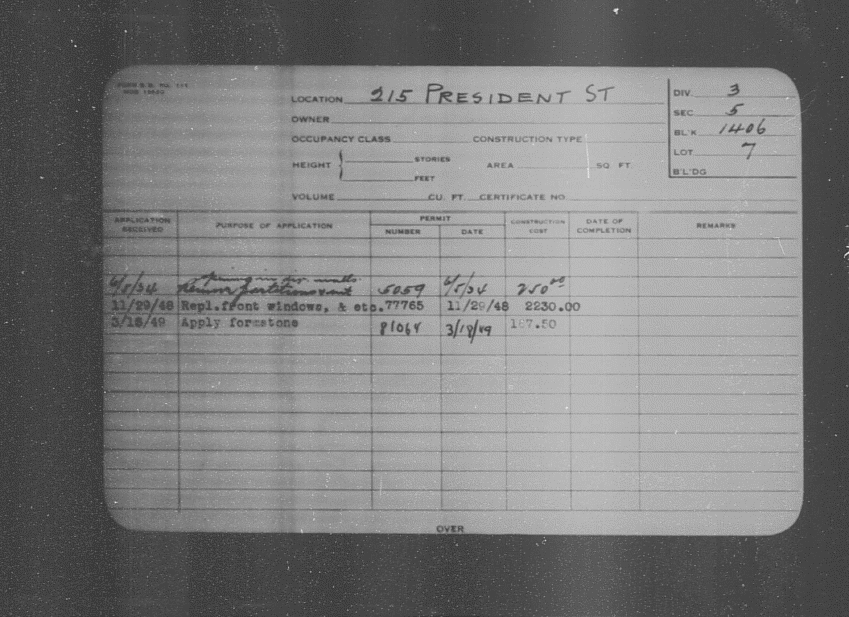 FORM B.B. No. 111
LOCATION 215 PRESIDENT ST
OWNER
OCCUPANCY CLASS CONSTRUCTION TYPE
HEIGHT STORIES FEET AREA SQ FT.
VOLUME CU. FT. CERTIFICATE NO.
DIV. 3
SEC 5
BL'K 1406
LOT 7
B'L'DG
APPLICATION RECEIVED PURPOSE OF APPLICATION PERMIT NUMBER DATE CONSTRUCTION COST DATE OF COMPLETION REMARKS
opening in div. walls
6/5/34 Remove partitions & cut 5059 6/5/34 250.00
11/29/48 Repl.front windows, & etc. 77765 11/29/48 2230.00
3/18/49 Apply formstone 81064 3/18/49 167.50
OVER